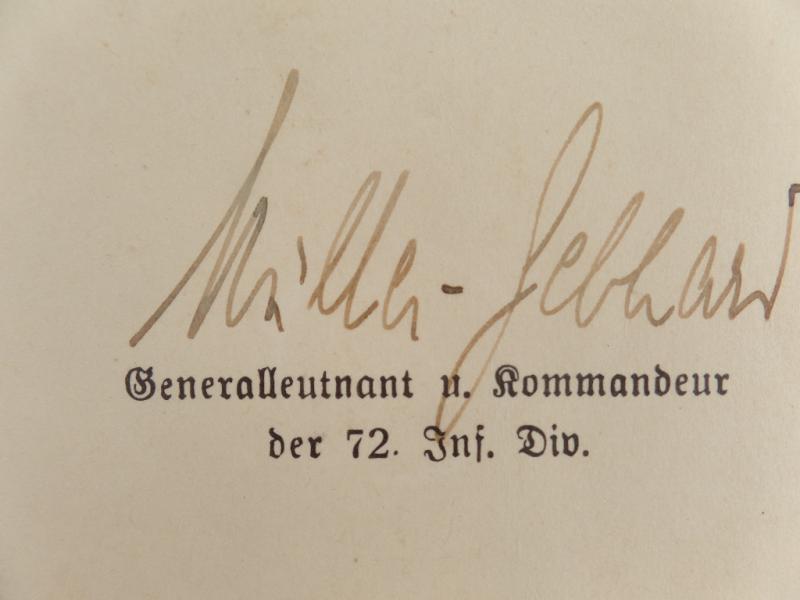 Müller-Gebhard
Generalleutnant u. Kommandeur
der 72. Inf. Div.